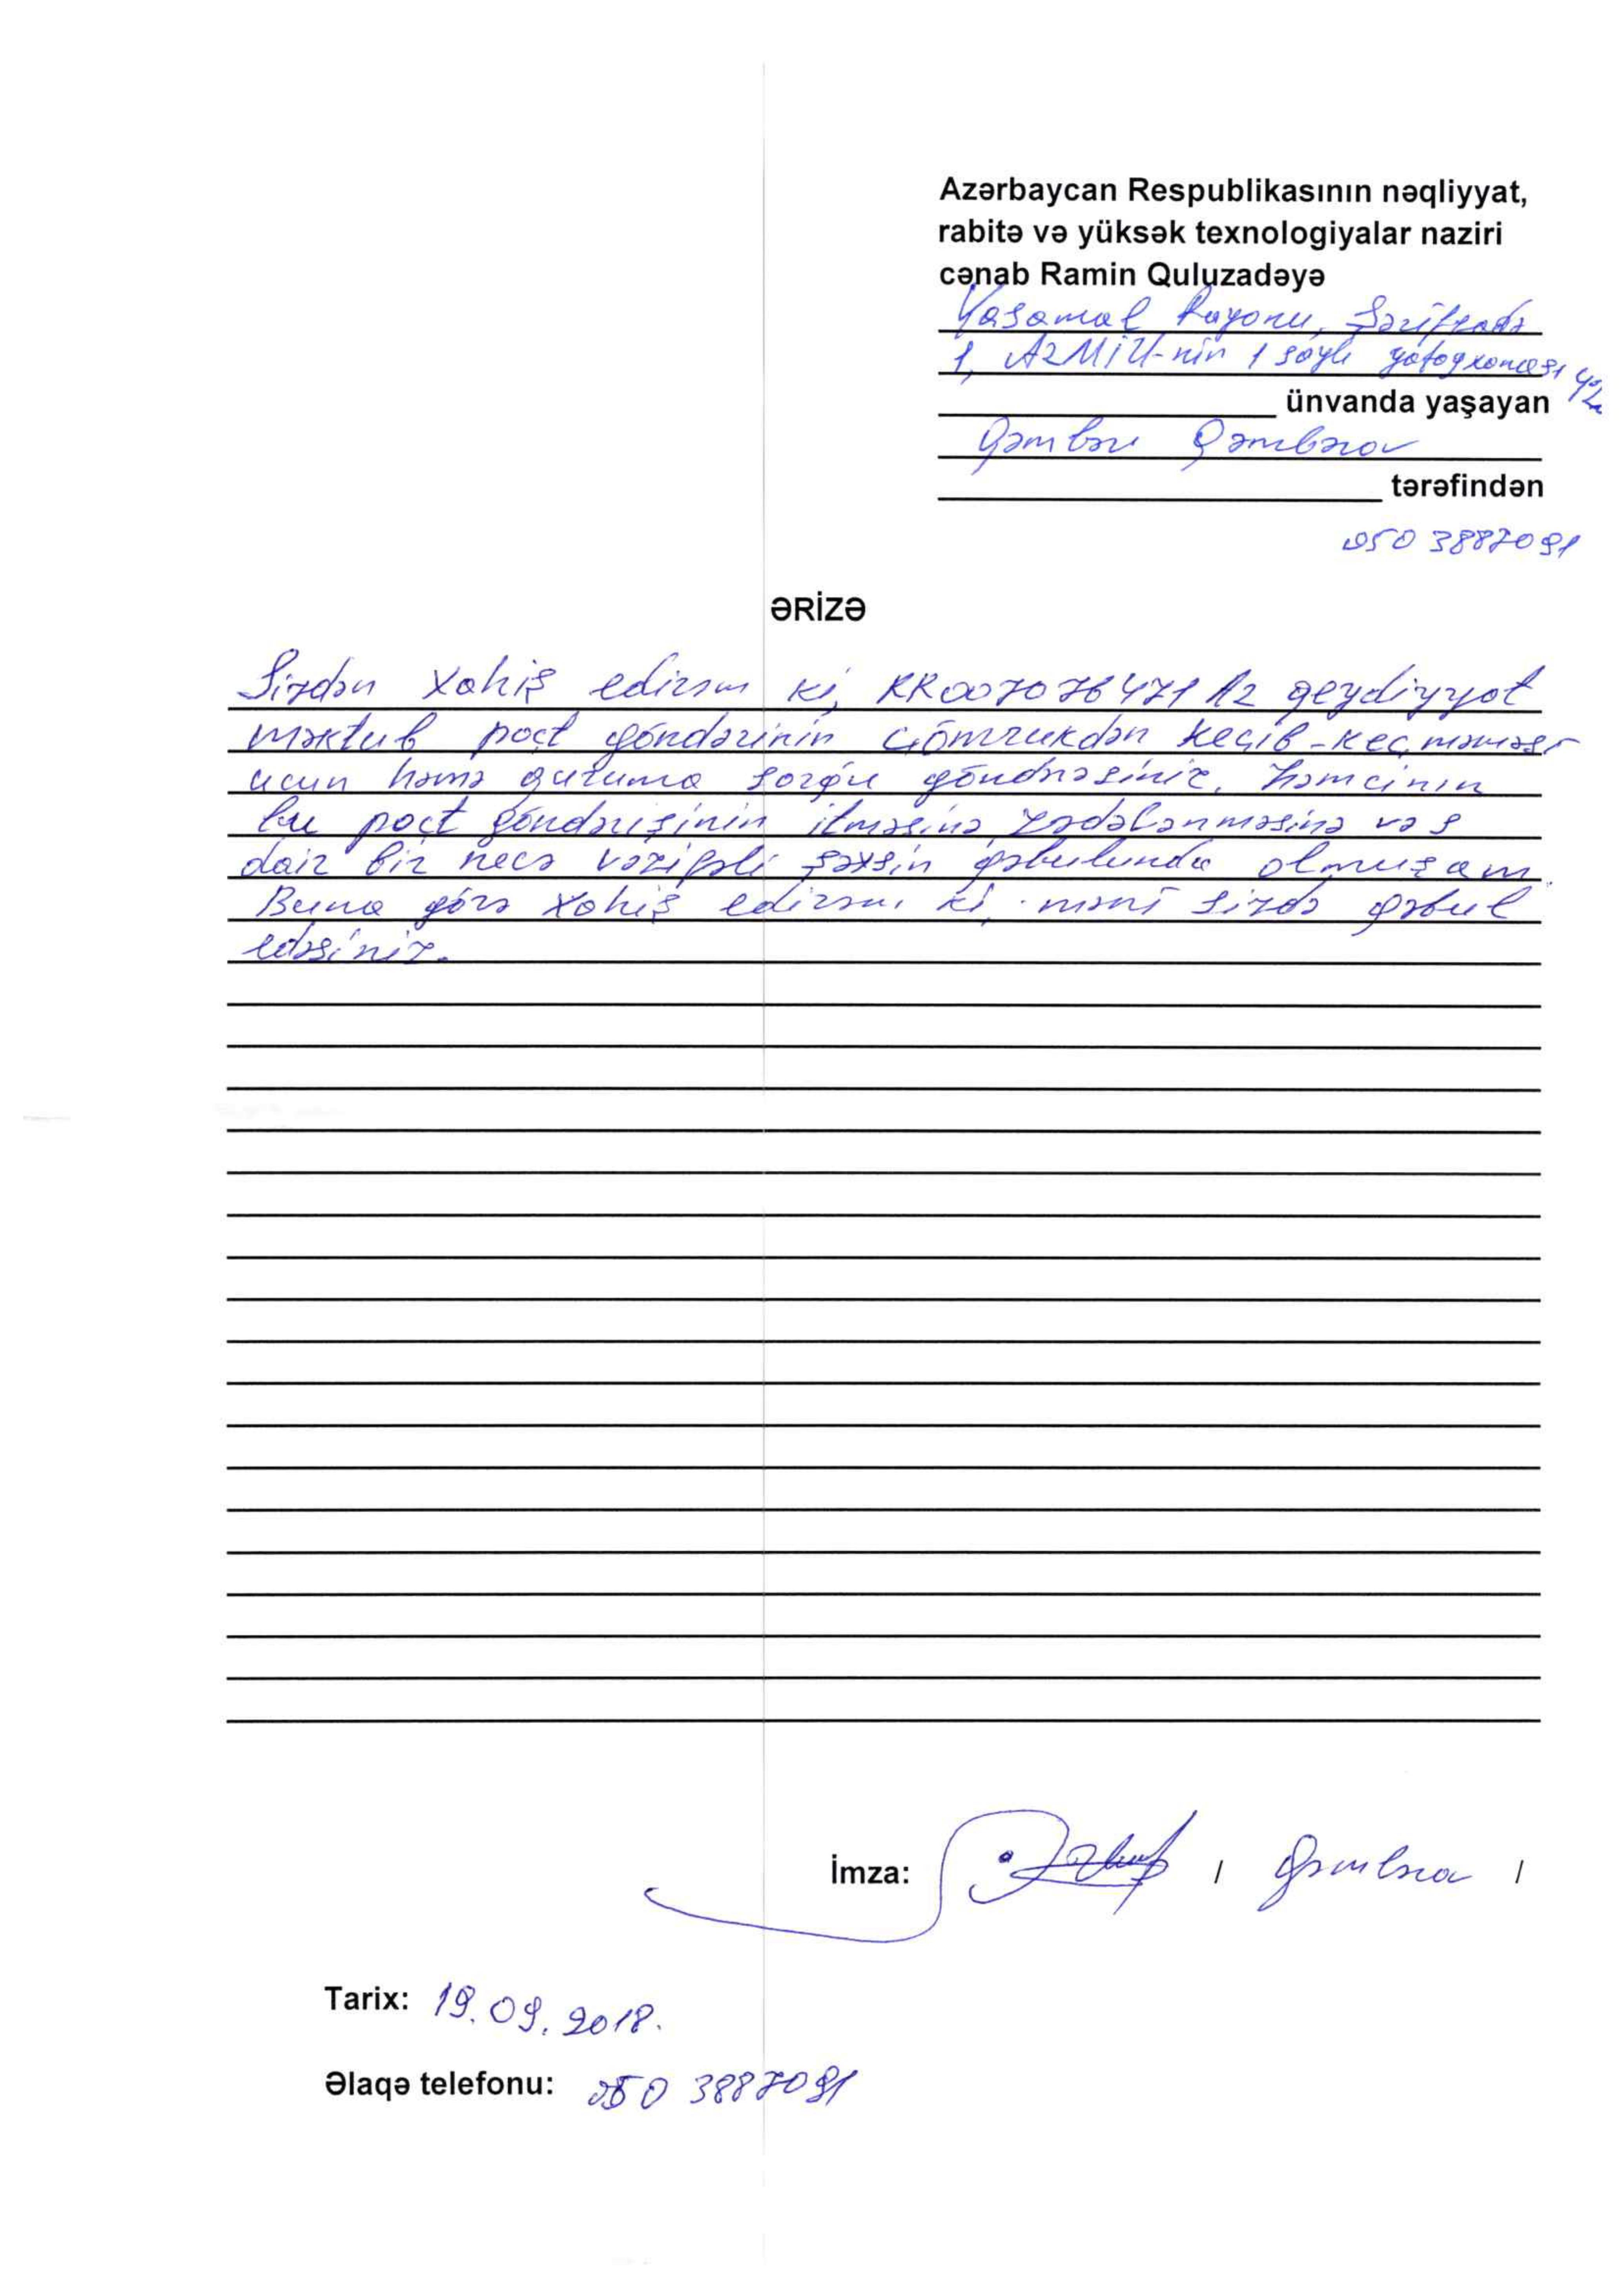 Azərbaycan Respublikasının nəqliyyat,
rabitə və yüksək texnologiyalar naziri
cənab Ramin Quluzadəyə
Yasamal Rayonu, Şərifzadə
1, AzMİU-nin 1 saylı yataqxanası
ünvanda yaşayan
Qəmbər Qəmbərov
tərəfindən
050 3887091
ƏRİZƏ
Sizdən xahiş edirəm ki, RR007076471AZ qeydiyyat
məktub poçt göndərinin Gömrukdən keçib-keçməməsi
ucun həmə quruma sorğu göndrəsiniz. Həmcinin
bu poçt göndərişinin itməsinə, zədələnməsinə və s
dair bir necə vəzifəli şəxsin qəbulunda olmuşam.
Buna görə xahiş edirəm ki, məni sizdə qəbul
edəsiniz.
İmza: / Qəmbər /
Tarix: 19.09.2018.
Əlaqə telefonu: 050 3887091